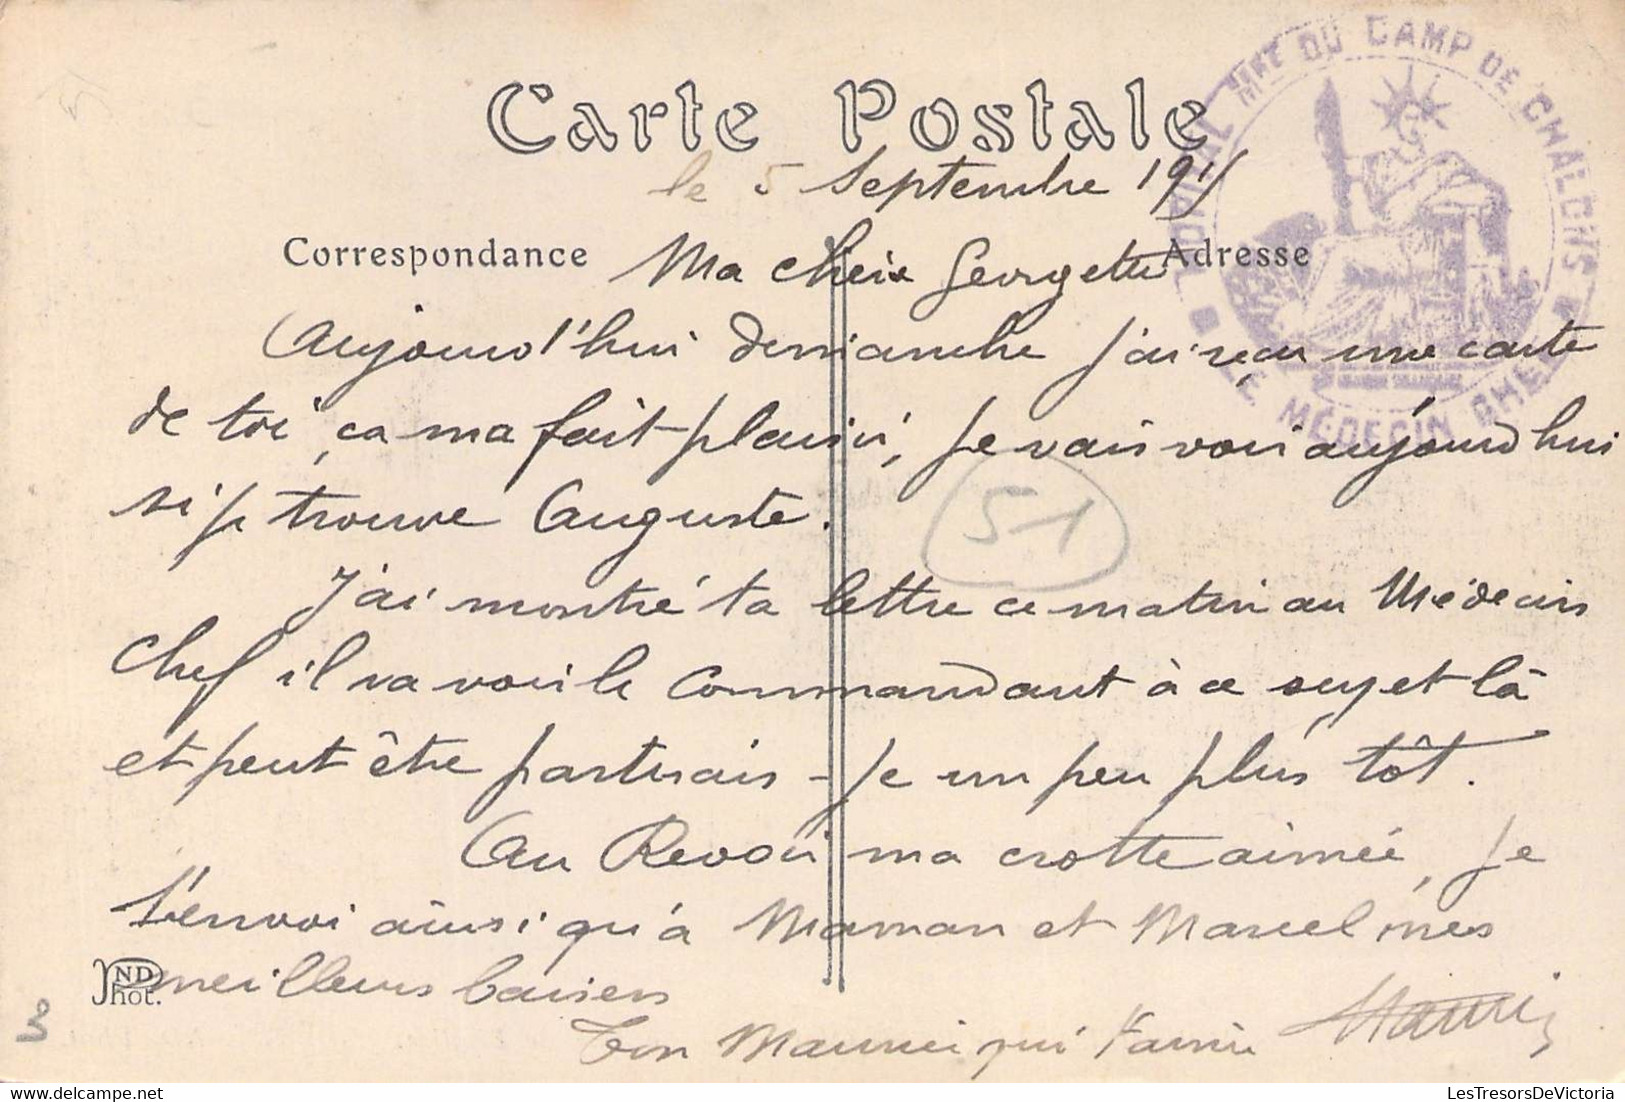 Carte Postale
HÔPITAL MRE DU CAMP DE CHÂLONS
LE MÉDECIN CHEF
le 5 Septembre 1915
Correspondance
Adresse
Ma chère Georgette
Aujourd'hui dimanche j'ai reçu une carte
de toi, ça ma fait plaisir, je vais voir aujourd'hui
si je trouve Auguste.
51
J'ai montré ta lettre ce matin au Médecin
Chef il va voir le Commandant à ce sujet là
et peut être partirais-je un peu plus tôt.
Au Revoir ma crotte aimée, je
t'envoi ainsi qu'à Maman et Marcel mes
meilleurs baisers
ND
Phot.
3
Ton Maurice qui t'aime Maurice
LesTresorsDeVictoria.com